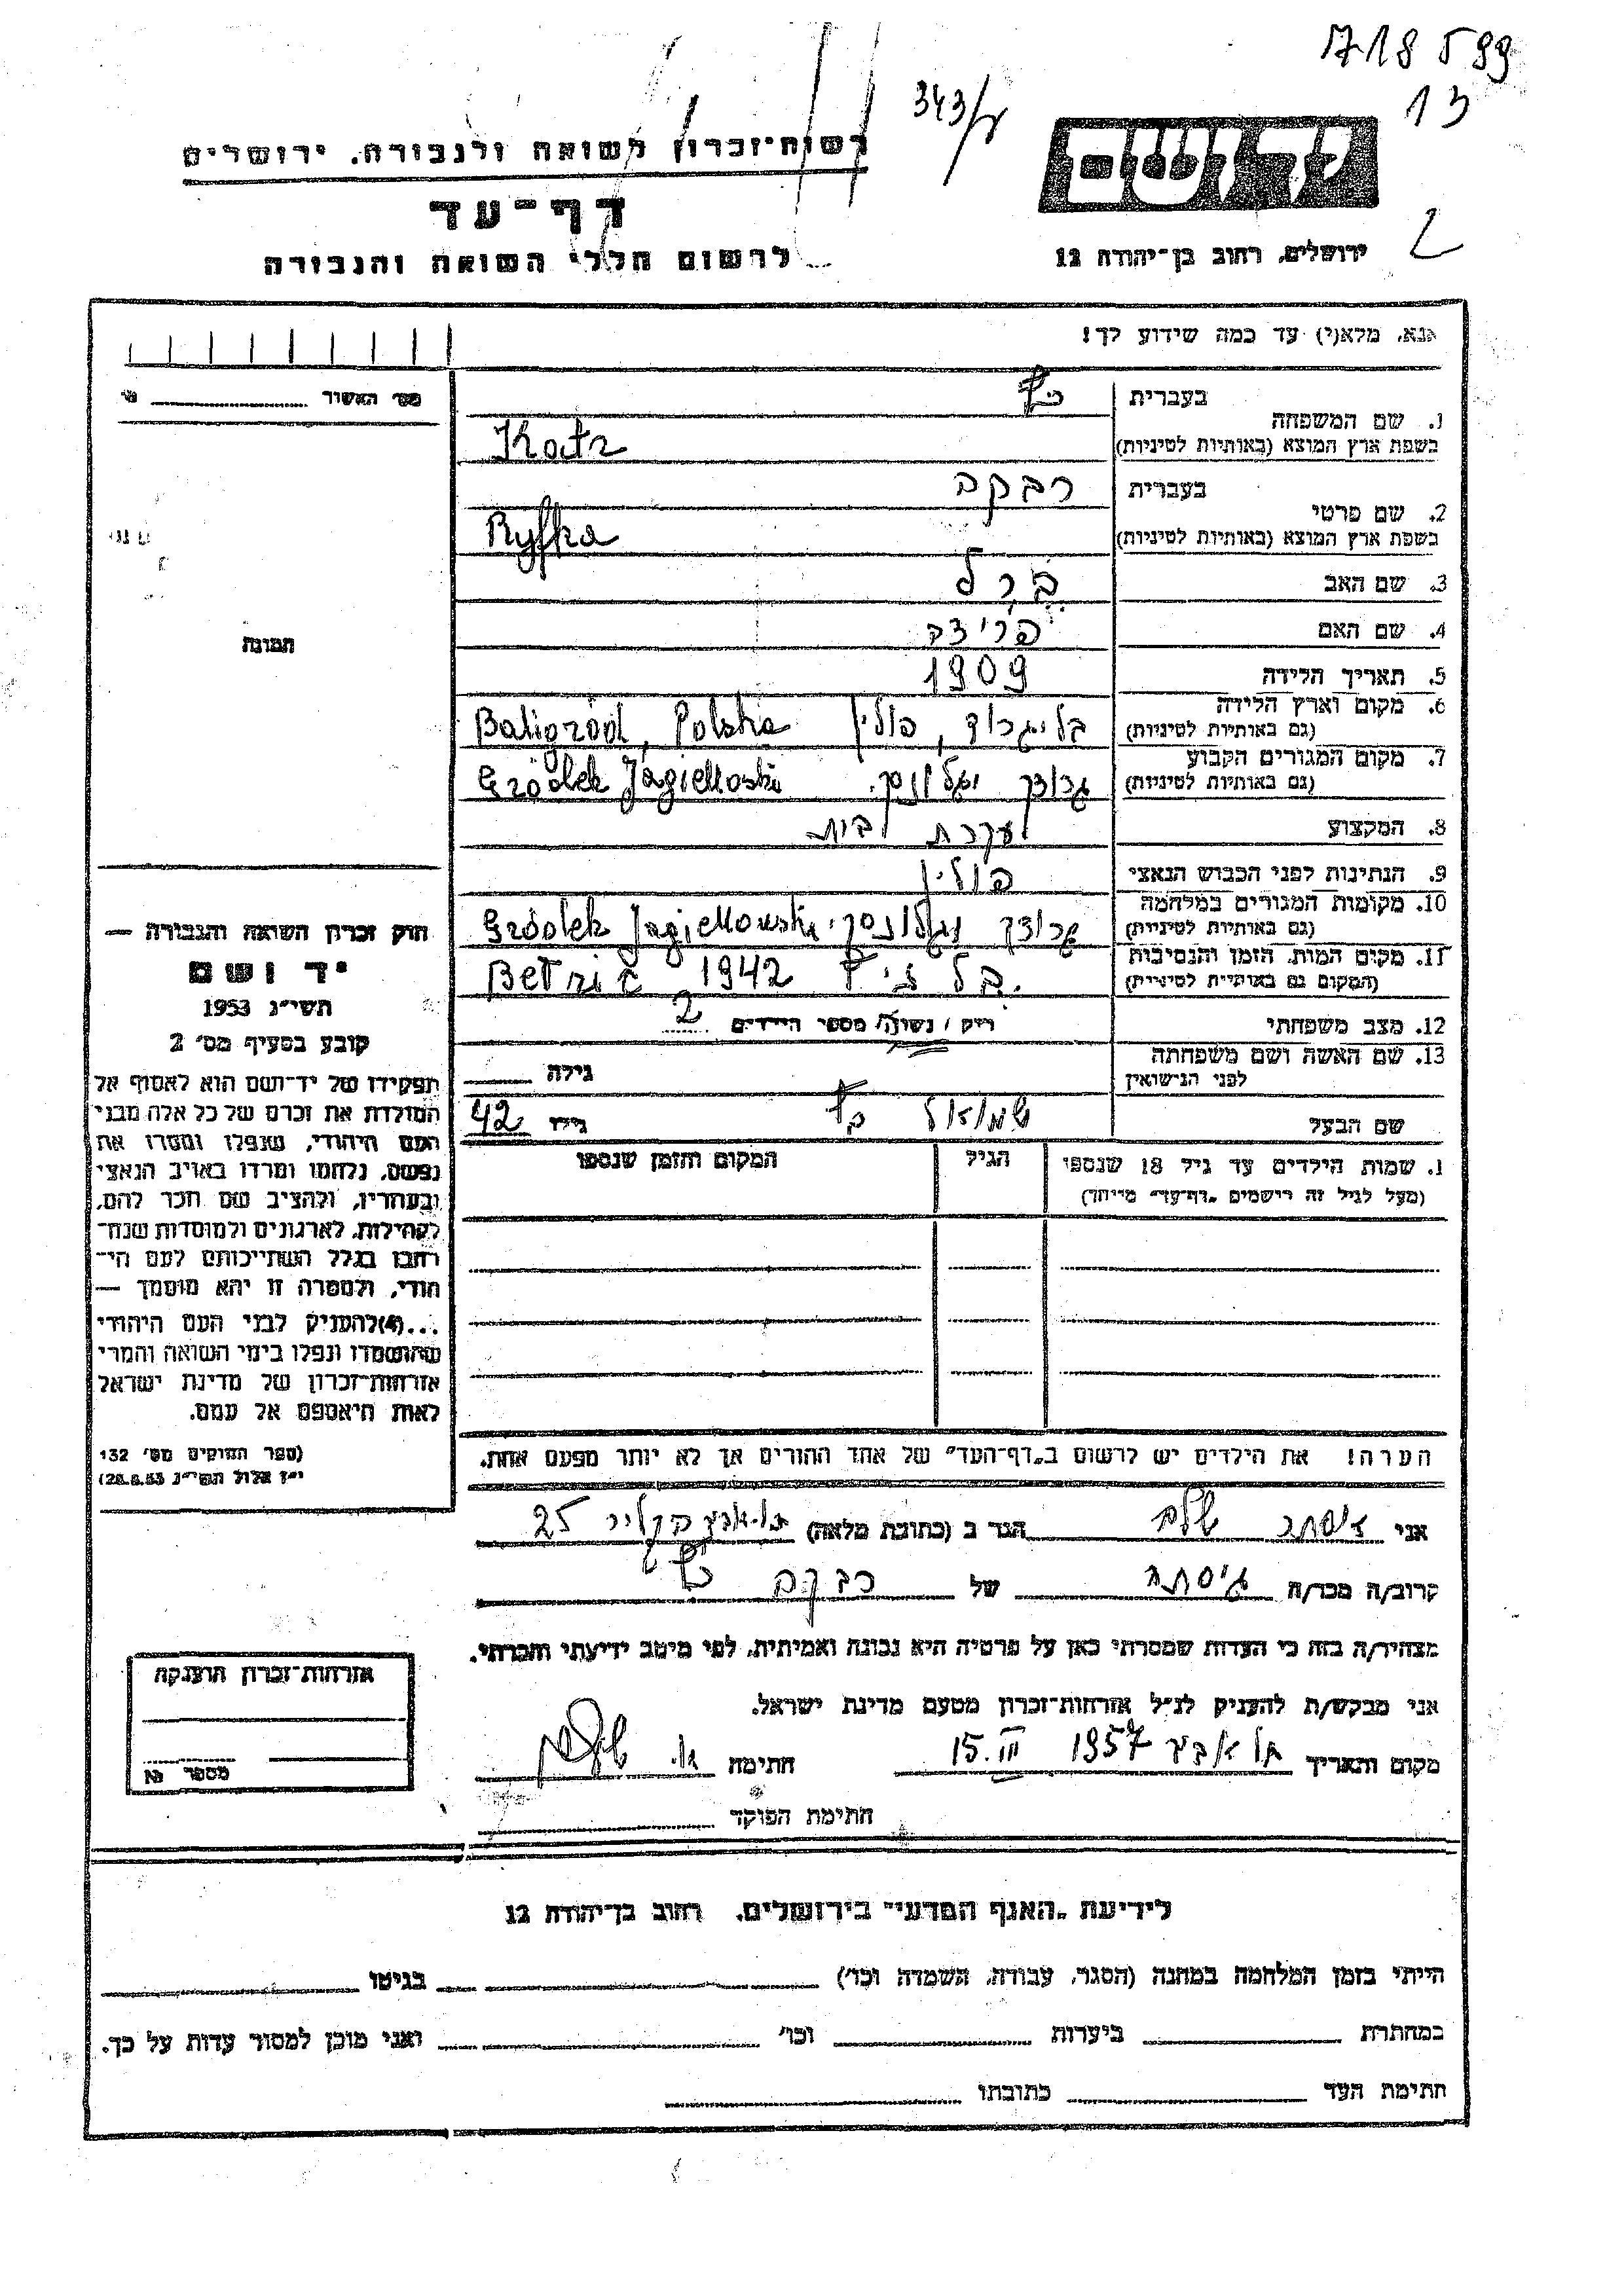 718599
13
343/
רשות־זכרון לשואה ולגבורה, ירושלים
דף־עד
לרשום חללי השואה והגבורה
ידושם
ירושלים, רחוב בן־יהודה 12
אנא, מלא(י) עד כמה שידוע לך!
מס׳ האשיר
תמונה
1. שם המשפחה
בעברית כץ
בשפת ארץ המוצא (באותיות לטיניות) Katz
2. שם פרטי
בעברית רבקה
בשפת ארץ המוצא (באותיות לטיניות) Ryfka
3. שם האב ברל
4. שם האם פרידה
5. תאריך הלידה 1909
6. מקום וארץ הלידה (גם באותיות לטיניות) בליגרוד, פולין Baligród, Polska
7. מקום המגורים הקבוע (גם באותיות לטיניות) גרודק Gródek Jagielloski
8. המקצוע עקרת בית
9. הנתינות לפני הכבוש הנאצי פולין
10. מקומות המגורים במלחמה (גם באותיות לטיניות) גרודק Gródek Jagiellowski
11. מקום המות, הזמן והנסיבות (המקום גם באותיות לטיניות) 1942
12. מצב משפחתי רוק / נשוי/ מספר הילדים 2
13. שם האשה ושם משפחתה לפני הנישואין גילה
שם הבעל שמואל כץ גילו 42
1. שמות הילדים עד גיל 18 שנספו
(מעל לגיל זה רישמים „דף־עד״ מיוחד)
הגיל
המקום והזמן שנספו
הערה! את הילדים יש לרשום ב„דף־העד״ של אחד ההורים אך לא יותר מפעם אחת.
חוק זכרון השואה והגבורה —
יד ושם
תשי״ג 1953
קובע בסעיף מס׳ 2
תפקידו של יד־ושם הוא לאסוף אל
המולדת את זכרם של כל אלה מבני
העם היהודי, שנפלו ומסרו את
נפשם, נלחמו ומרדו באויב הנאצי
ובעוזריו, ולהציב שם וזכר להם,
לקהילות, לארגונים ולמוסדות שנח־
רבו בגלל השתייכותם לעם הי־
הודי, ולמטרה זו יהא מוסמך —
...(4)להעניק לבני העם היהודי
שהושמדו ונפלו בימי השואה והמרי
אזרחות־זכרון של מדינת ישראל
לאות היאספם אל עמם.
(ספר החוקים מס׳ 132
י״ז אלול תשי״ג 28.8.53)
אני שלם הגר ב (כתובת מלאה) 25
קרוב/ה מכר/ה גיסתה של רבקה כץ
מצהיר/ה בזה כי העדות שמסרתי כאן על פרטיה היא נכונה ואמיתית, לפי מיטב ידיעתי והכרתי.
אני מבקש/ת להעניק לנ״ל אזרחות־זכרון מטעם מדינת ישראל.
מקום ותאריך תל אביב 1957 15.III חתימה
חתימת הפוקד
אזרחות־זכרון הוענקה
מספר
לידיעת „האגף המדעי״ בירושלים, רחוב בן־יהודה 12
הייתי בזמן המלחמה במחנה (הסגר, עבודה, השמדה וכו׳) בגיטו
במחתרת ביערות וכו׳ ואני מוכן למסור עדות על כך.
חתימת העד כתובתו